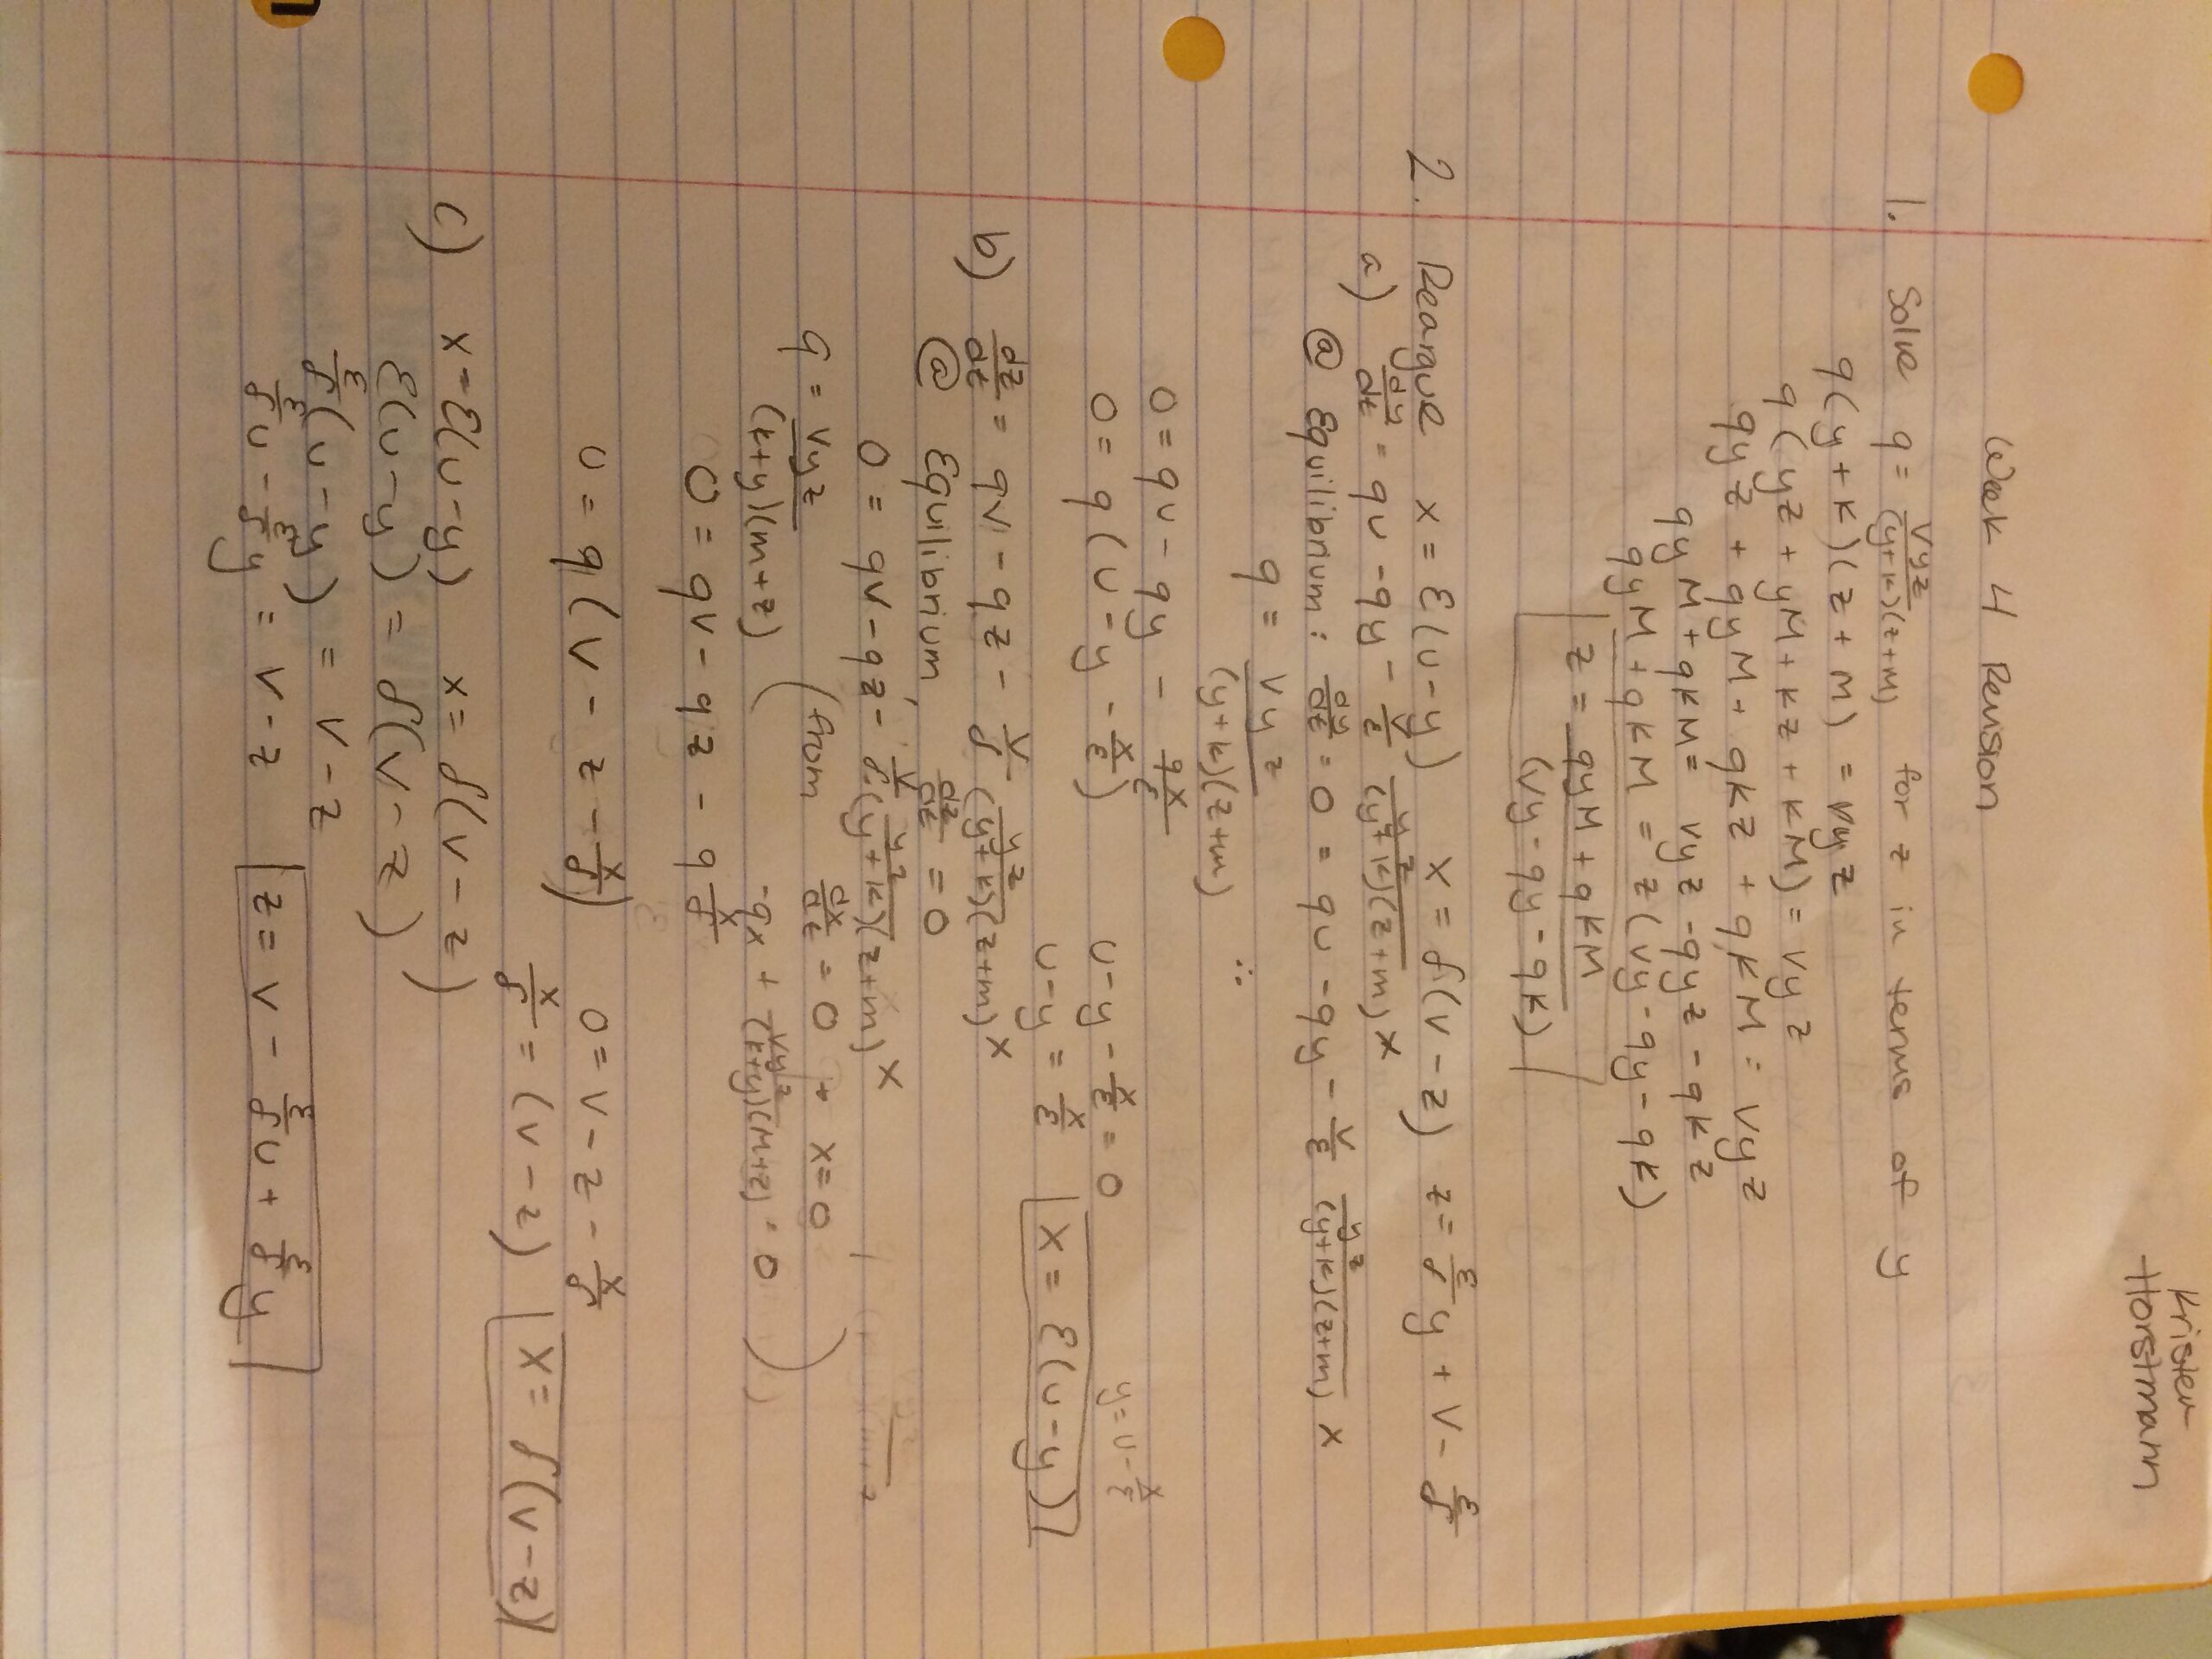 Krister
Horstmann
Week 4 Revision
1. Solve q = Vyz/(y+K)(z+m) for z in terms of y
q(y+K)(z+M) = Vyz
q(yz + yM + Kz + KM) = Vyz
qyz + qyM + qKz + qKM = Vyz
qyM + qKM = Vyz - qyz - qKz
qyM + qKM = z(Vy - qy - qK)
z = qyM + qKM/(Vy - qy - qK)
2. Rearque x = ε(u-y) x = ρ(v-z) z = ε/ρ y + v - ε/ρ
a) dy/dt = qu - qy - V/ε yz/(y+K)(z+m) x
@ Equilibrium: dy/dt = 0 = qu - qy - V/ε yz/(y+K)(z+m) x
q = Vyz/(y+K)(z+m) ∴
0 = qu - qy - qx/ε
0 = q(u - y - x/ε) u - y - x/ε = 0 y = u - x/ε
u - y = x/ε x = ε(u-y)
b) dz/dt = qv - qz - V/ρ yz/(y+K)(z+m) x
@ Equilibrium, dz/dt = 0
0 = qv - qz - V/ρ yz/(y+K)(z+m) x
q = Vyz/(K+y)(m+z) (from dx/dt = 0 + x=0
-qx + Vyz/(K+y)(M+z) = 0)
0 = qv - qz - q x/ρ
0 = q(v - z - x/ρ) 0 = v - z - x/ρ
x/ρ = (v-z) x = ρ(v-z)
c) x = ε(u-y) x = ρ(v-z)
ε(u-y) = ρ(v-z)
ε/ρ(u-y) = v-z
ε/ρ u - ε/ρ y = v-z z = v - ε/ρ u + ε/ρ y